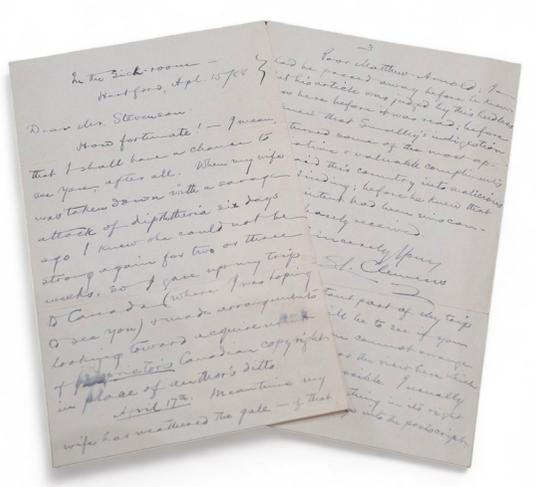 In the Sick-room —
Hartford, Apl. 15/88
Dear Mr. Stevenson:
How fortunate! — I mean,
that I shall have a chance to
see you, after all. When my wife
was taken down with a savage
attack of diphtheria six days
ago I knew she could not be
strong again for two or three
weeks. So I gave up my trip
to Canada (where I was hoping
to see you) & made arrangements
looking toward acquirement
of proprietor's Canadian copyright
in place of author's ditto.
April 17th. Meantime my
wife has weathered the gale — of that
3
Poor Matthew Arnold: I am
had he passed away before he knew
his article was judged by this
here before it was read; before
that Smalley's indigestion
turned some of the most
& valuable compliments
this country into malicious
; before he knew that
had been
received
Sincerely Yours
S. L. Clemens
part of my trip
be to see if you
cannot arrange
the visit here which
possible. I usually
thing in its right
into the postscript.